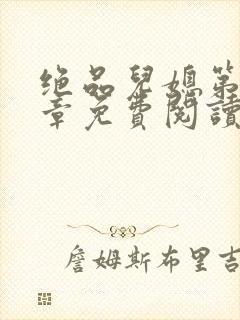 绝品兒媳第
章免费閱讀
詹姆斯布里吉